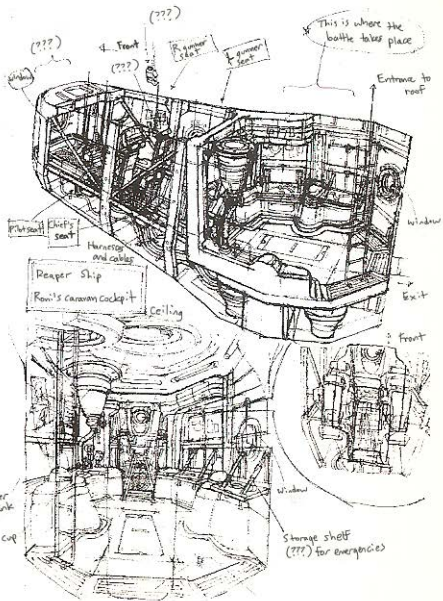 (???)
(???)
← Front
(???)
R gunner
seat
L gunner
seat
* This is where the
battle takes place
Entrance to
roof
window
window
Pilot seat
Chief's
seat
Harnesses
and cables
Exit
Reaper Ship
Roni's caravan cockpit
Ceiling
: Front
window
Storage shelf
(???) for emergencies
cup